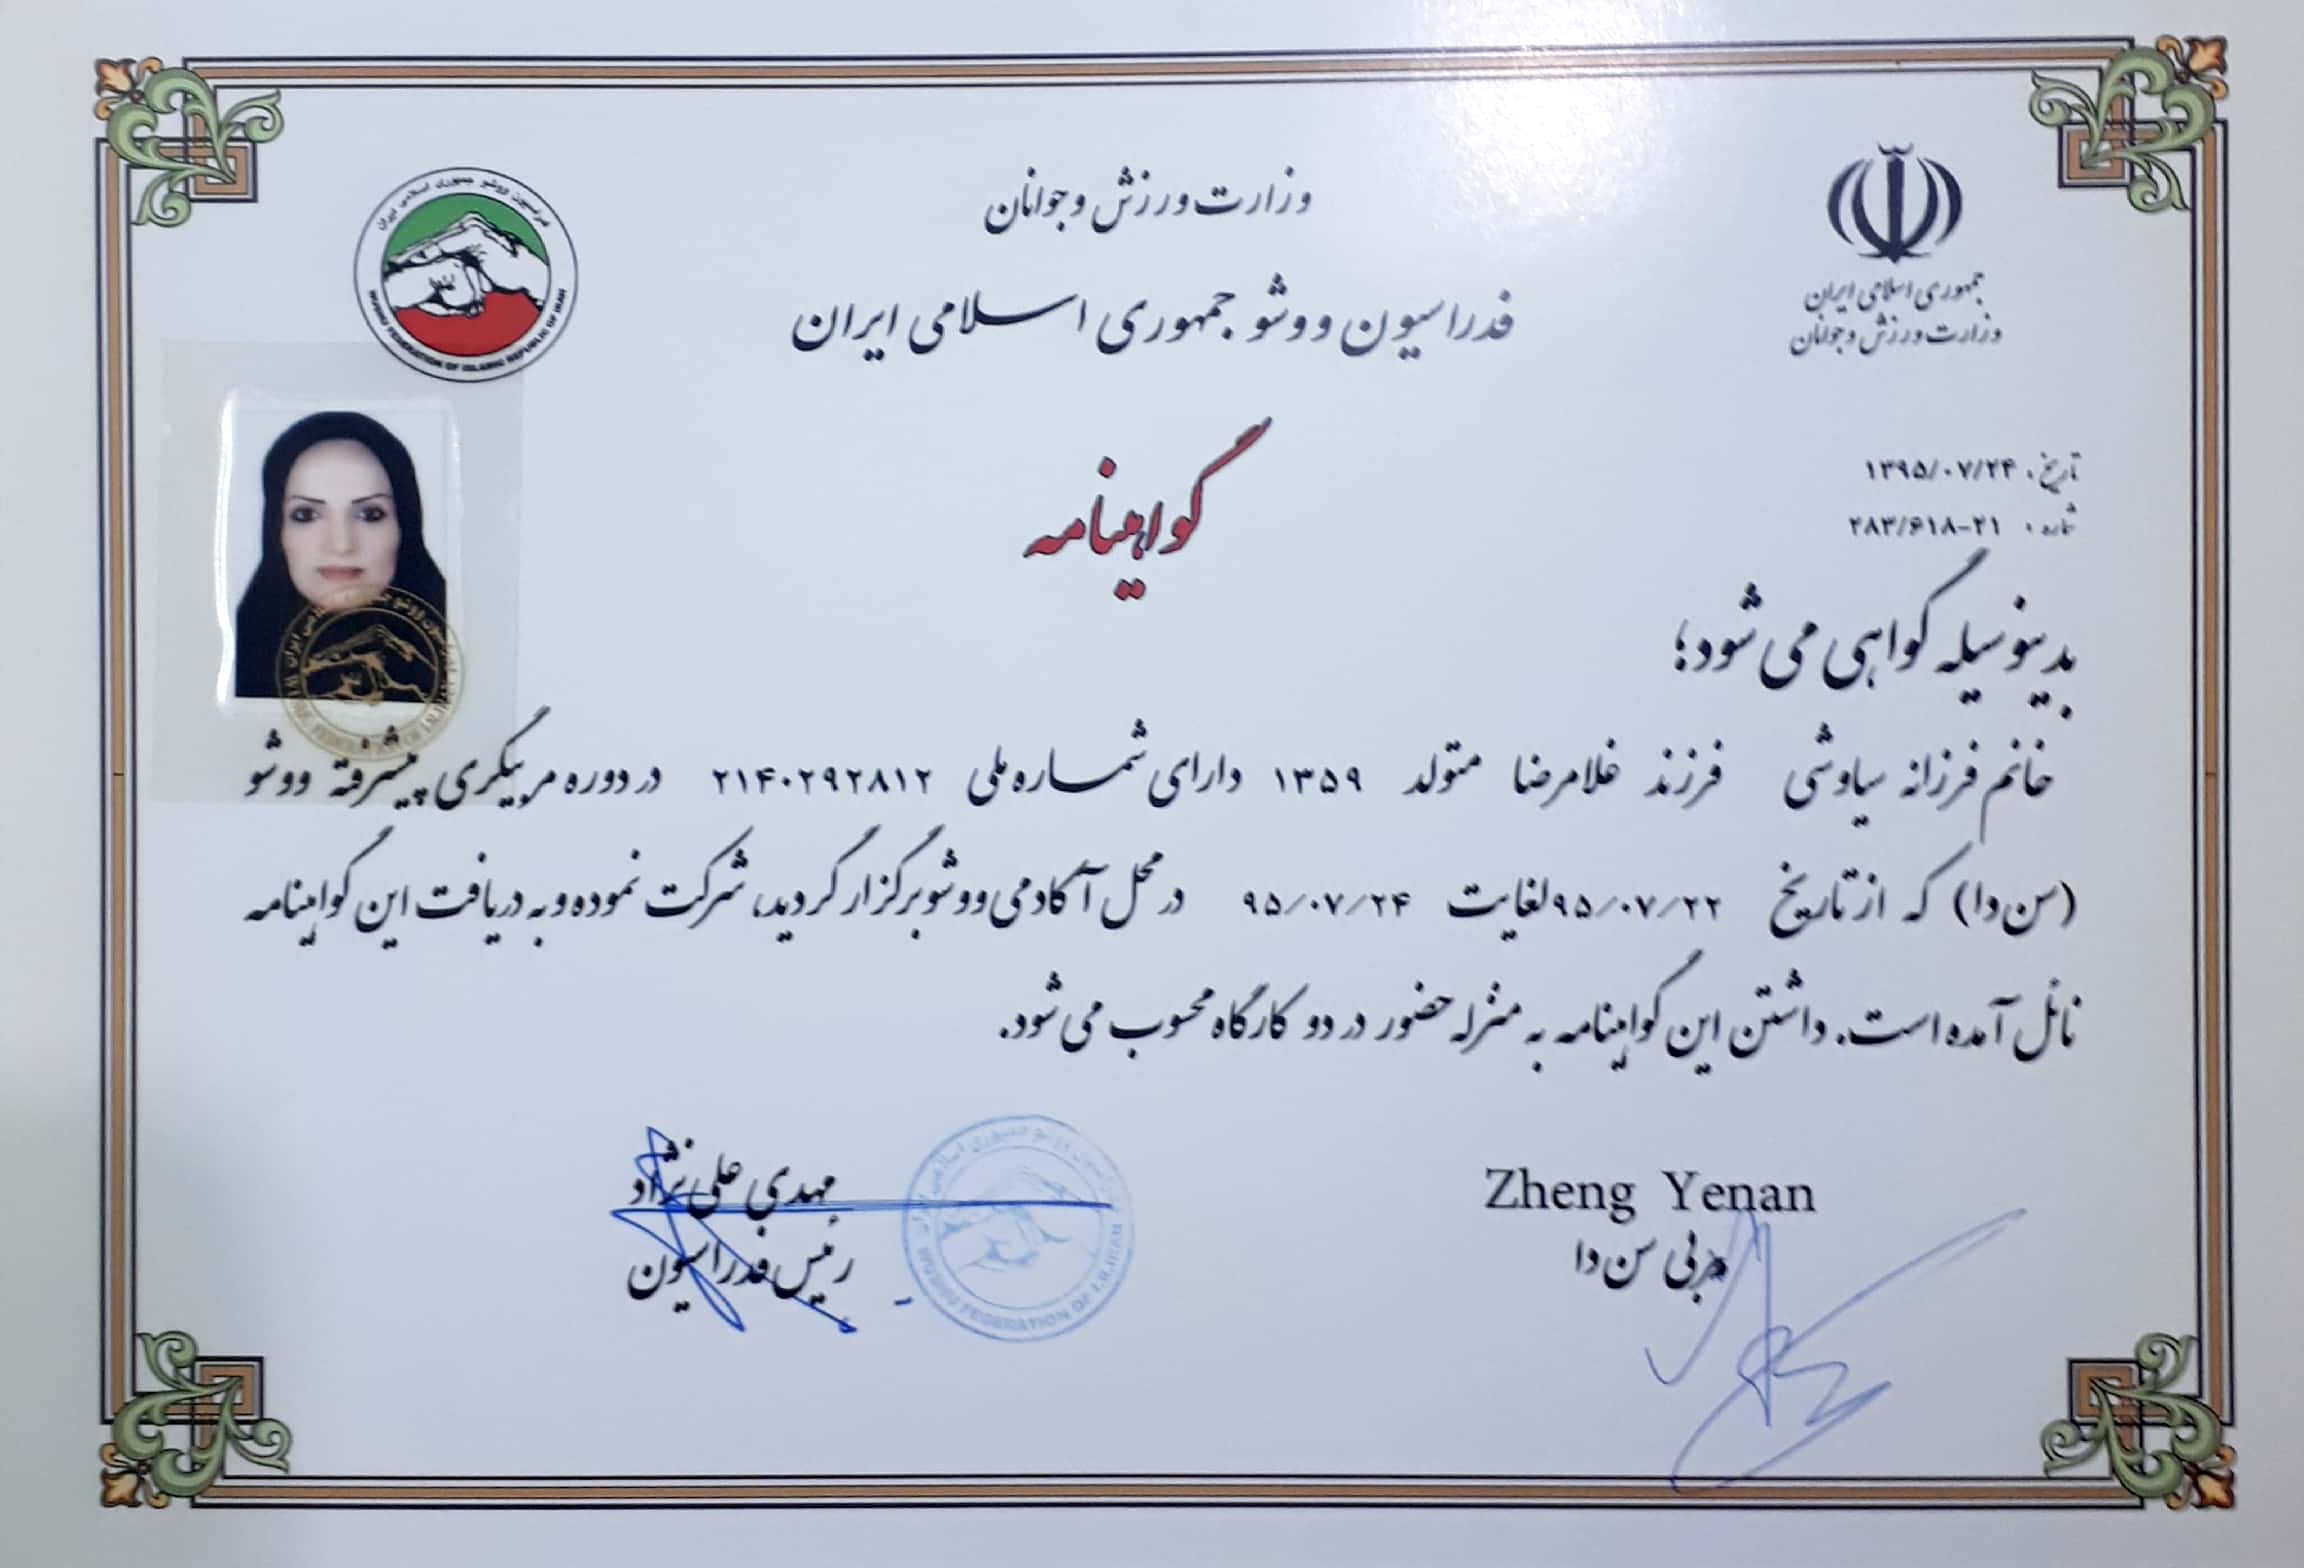 وزارت ورزش و جوانان
فدراسیون ووشو جمهوری اسلامی ایران
جمهوری اسلامی ایران
وزارت ورزش و جوانان
فدراسیون ووشو جمهوری اسلامی ایران
WUSHU FEDERATION OF ISLAMIC REPUBLIC OF IRAN
گواهینامه
تاریخ: ۱۳۹۵/۰۷/۲۴
شماره: ۲۸۳/۶۱۸-۲۱
بدینوسیله گواهی می شود؛
خانم فرزانه سیاوشی فرزند غلامرضا متولد ۱۳۵۹ دارای شماره ملی ۲۱۴۰۲۹۲۸۱۲ در دوره مربیگری پیشرفته ووشو
(سن دا) که از تاریخ ۹۵/۰۷/۲۲ لغایت ۹۵/۰۷/۲۴ در محل آکادمی ووشو برگزار گردید، شرکت نموده و به دریافت این گواهینامه
نائل آمده است. داشتن این گواهینامه به منزله حضور در دو کارگاه محسوب می شود.
Zheng Yenan
مربی سن دا
مهدی علی نژاد
رئیس فدراسیون
WUSHU FEDERATION OF I.R.IRAN